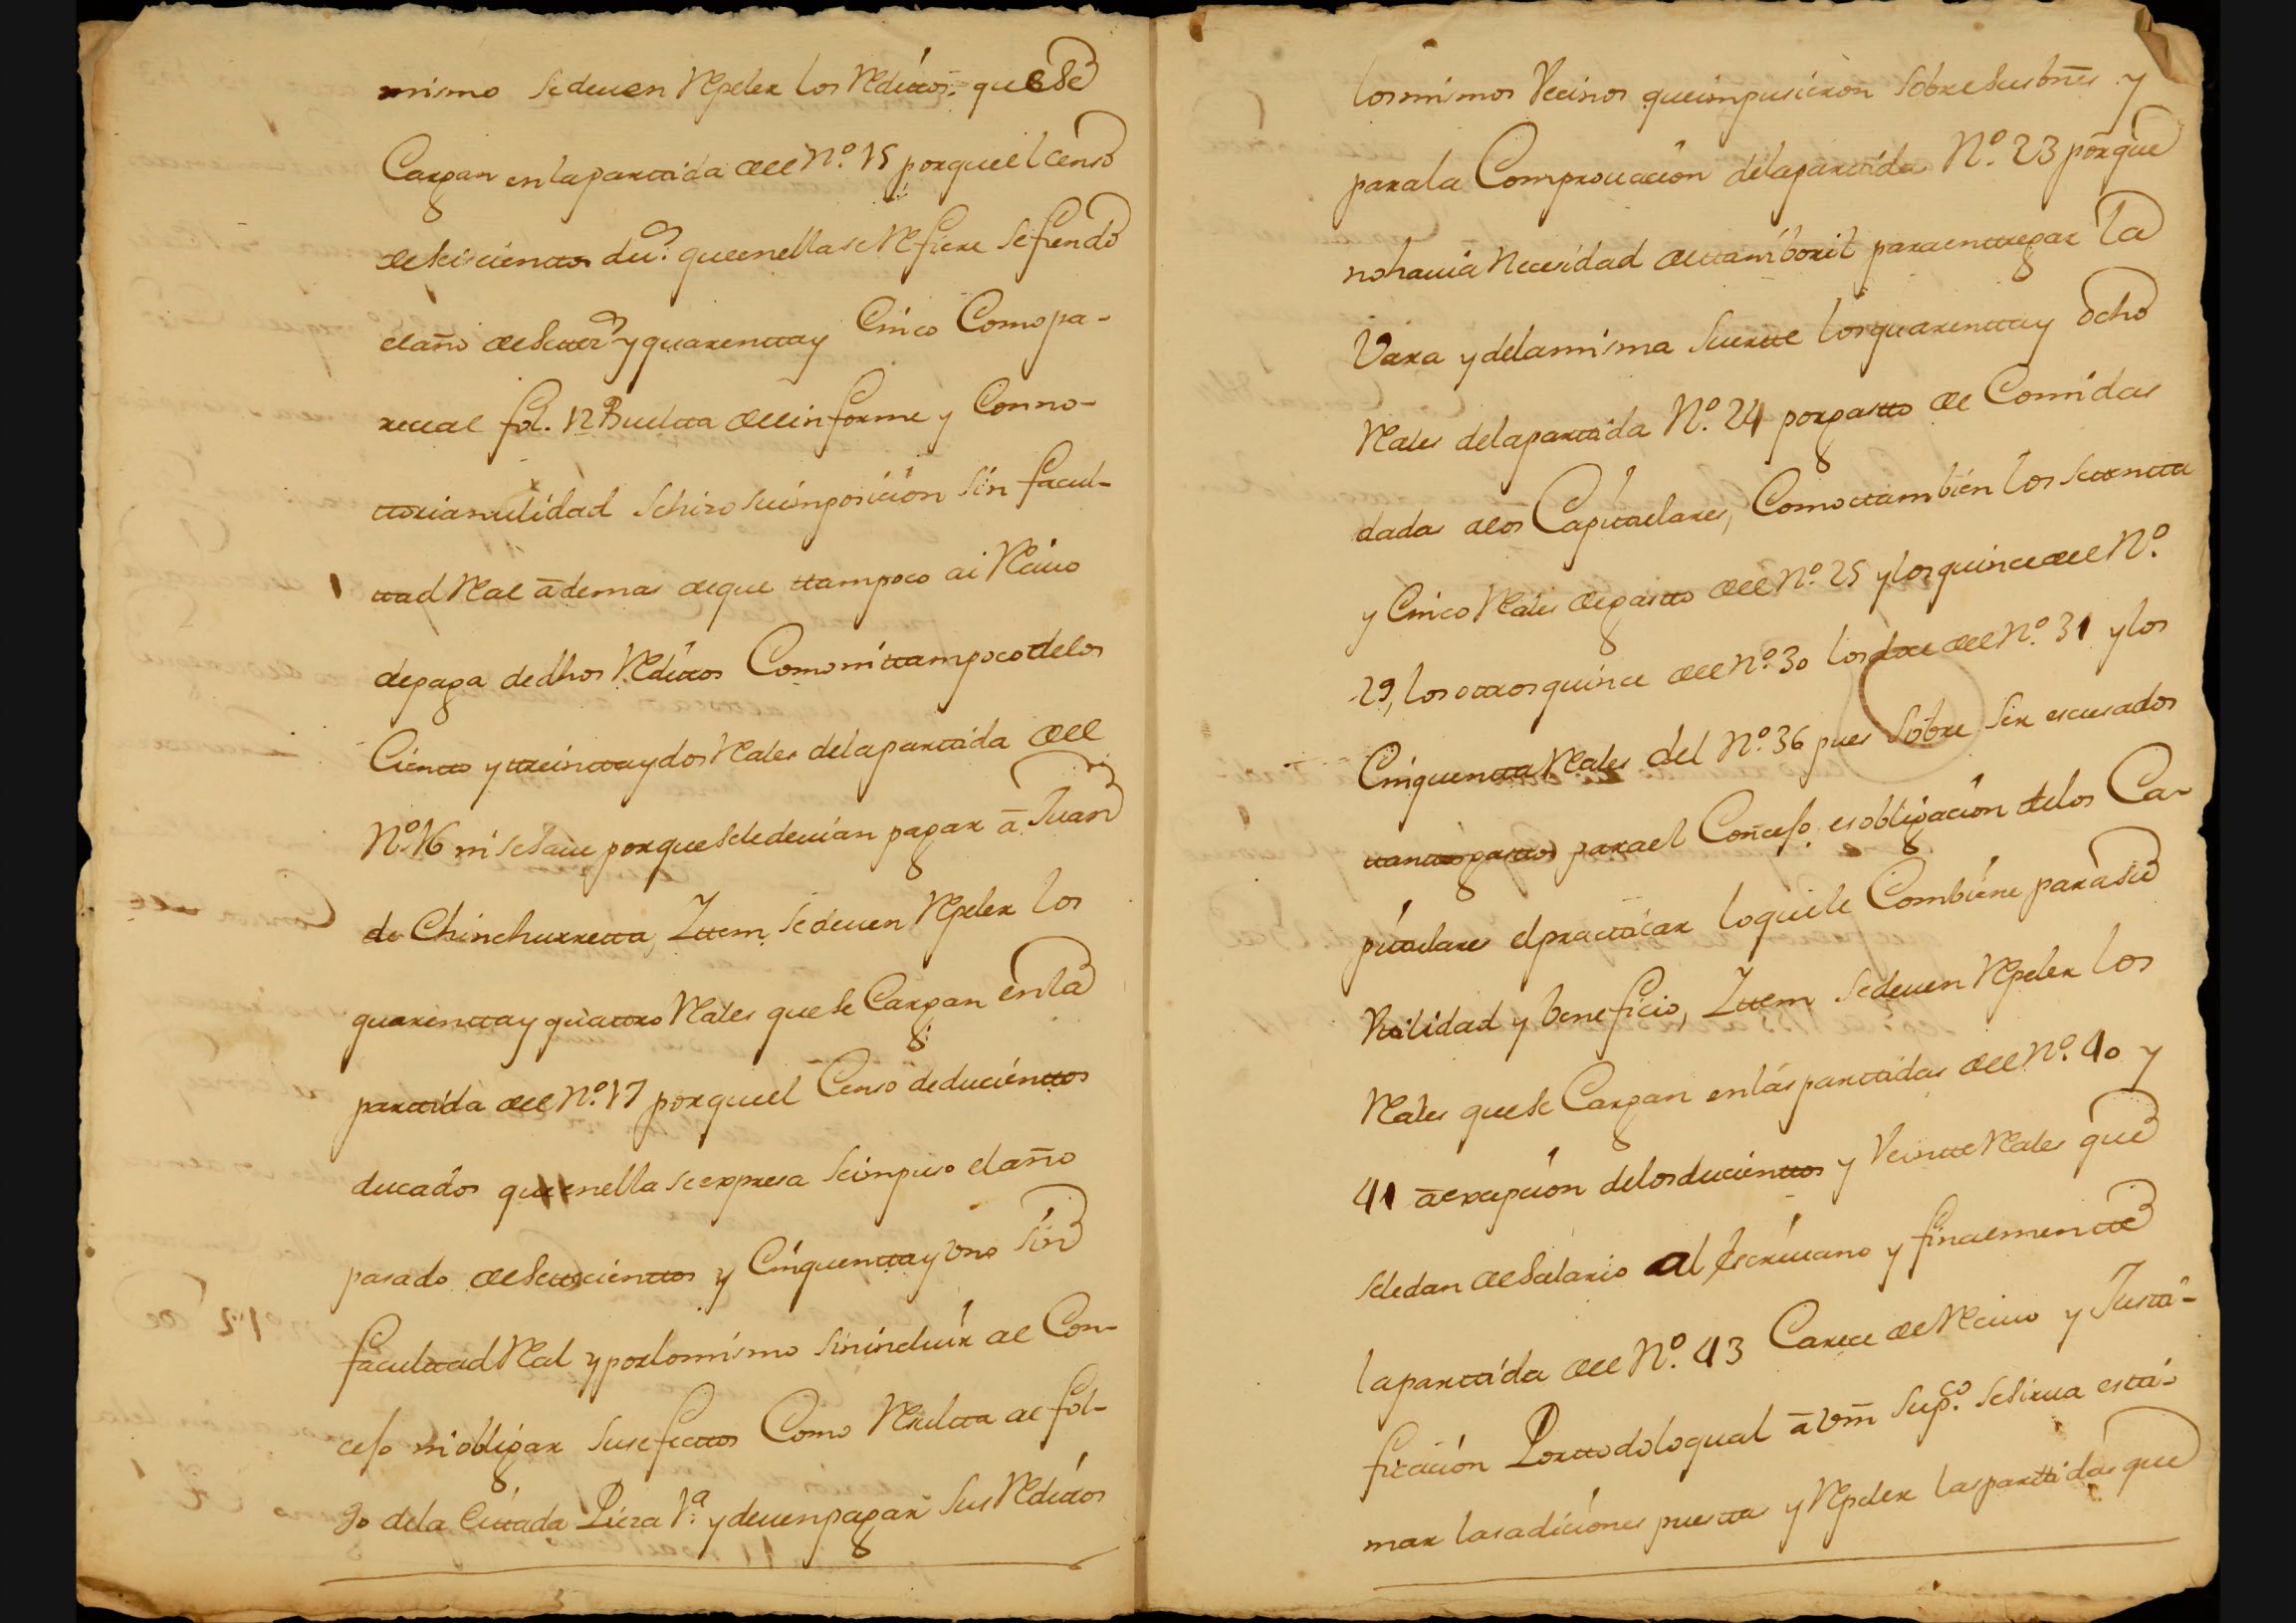 mismo sedeuen Repeler los Reditos que Se
Cargan enlapartida del N.º 15 porqueel censo
deseiscientos du.s queenellase Refiere sefundo
elaño deSetez.s y quarenttay Cinco Comopa-
rece al fol. 12 Buelta delinforme y Conno-
ttorianulidad Sehizo suimposicion sin facul-
ttad Real ademas deque ttampoco ai Reciuo
depaga dedhos Reditos Comonittampocodelos
Ciento ytreinttaydos Reales delapartida del
N.º 16 niseSaue porqueSeledeuian pagar à Juan
de Chinchurretta, Ittem sedeuen Repeler los
quarenttay quattro Reales quese Cargan enla
partida del N.º 17 porqueel Censo deducienttos
ducados queenella seexpresa seimpuso elaño
pasado deSettecienttos y Cinquenttayuno sin
facultad Real yporlomismo sininduir al Con-
cejo niobligar susefecttos Como Resulta al fol-
90 dela Cittada Pieza 1.ª ydeuenpagar sus Reditos
losmismos Vecinos queimpusieron sobresusbn̄es y
parala Comprouacion delapartida N.º 23 porque
nohauia Necesidad dettamboril paraenttregar la
Vara ydelamisma suertte losquarenttay ocho
Reales delapartida N.º 24 porgastto de Comidas
dadas alos Capitulares, Comottambien los settentta
y Cinco Reales degastto del N.º 25 ylosquincedel N.º
29, losottrosquince del N.º 30 losdoce del N.º 31 ylos
Cinquentta Reales del N.º 36 pues sobre ser escusados
ttanttosgasttos parael Concejo, esobligacion delos Ca-
pitulares elpracticar loquele Combiene parasu
Vtilidad y beneficio, Ittem sedeuen Repeler los
Reales quese Cargan enlaspartidas del N.º 40 y
41 aexcepcion delosducienttos y Veintte Reales que
seledan deSalario al Escriuano y finalmentte
lapartida del N.º 43 Carece de Reciuo y Justi-
ficacion Porttodoloqual à Vm̄ Sup.co Sesirua esti-
mar lasadiciones puesttas y Repeler laspartidas que